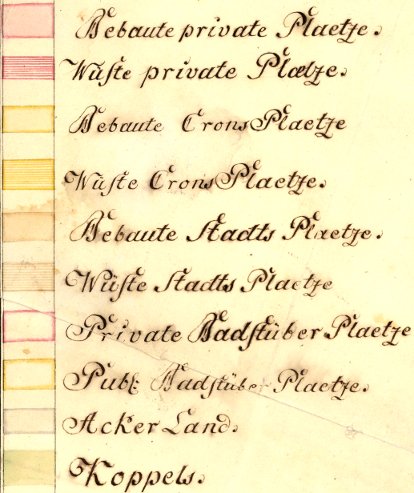 Bebaute private Plaetze.
Wüste private Plaetze.
Bebaute Crons Plaetze
Wüste Crons Plaetze.
Bebaute Stadts Plaetze.
Wüste Stadts Plaetze
Private Badstüber Plaetze
Publ: Badstüber Plaetze.
Acker Land.
Koppels.